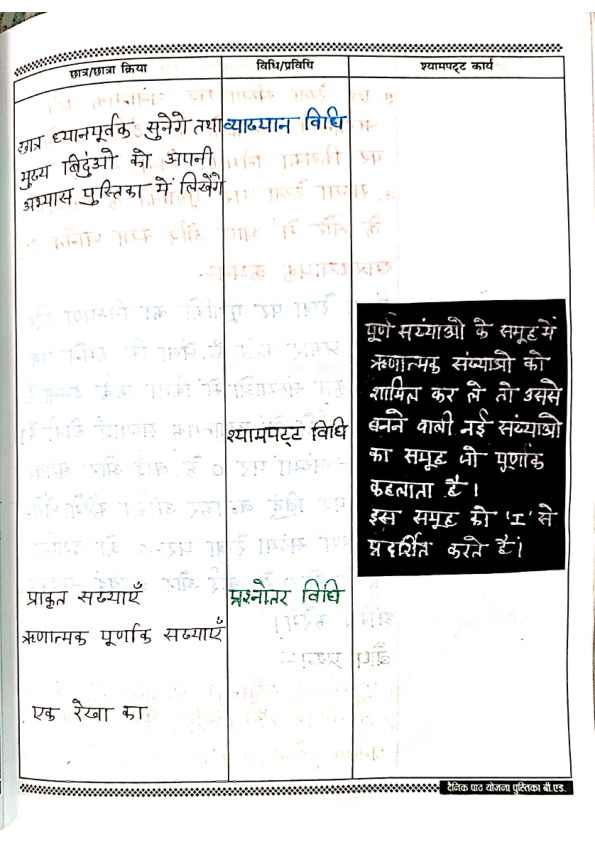 छात्र/छात्रा क्रिया
विधि/प्रविधि
श्यामपट्ट कार्य
छात्र ध्यानपूर्वक सुनेगे तथा
मुख्य बिदुंओ को अपनी
अभ्यास पुस्तिका में लिखेंगे
व्याख्यान विधि
श्यामपट्ट विधि
पूर्ण सख्याओ के समूह में
ऋणात्मक संख्याओ को
शामिल कर ले तो उससे
बनने वाली नई सख्याओ
का समूह जो पूर्णाक
कहलाता है।
इस समूह को 'I' से
प्रदर्शित करते है।
प्राकृत सख्याएँ
प्रश्नोतर विधि
ऋणात्मक पूर्णाक सख्याएँ
एक रेखा का
दैनिक पाठ योजना पुस्तिका बी.एड.